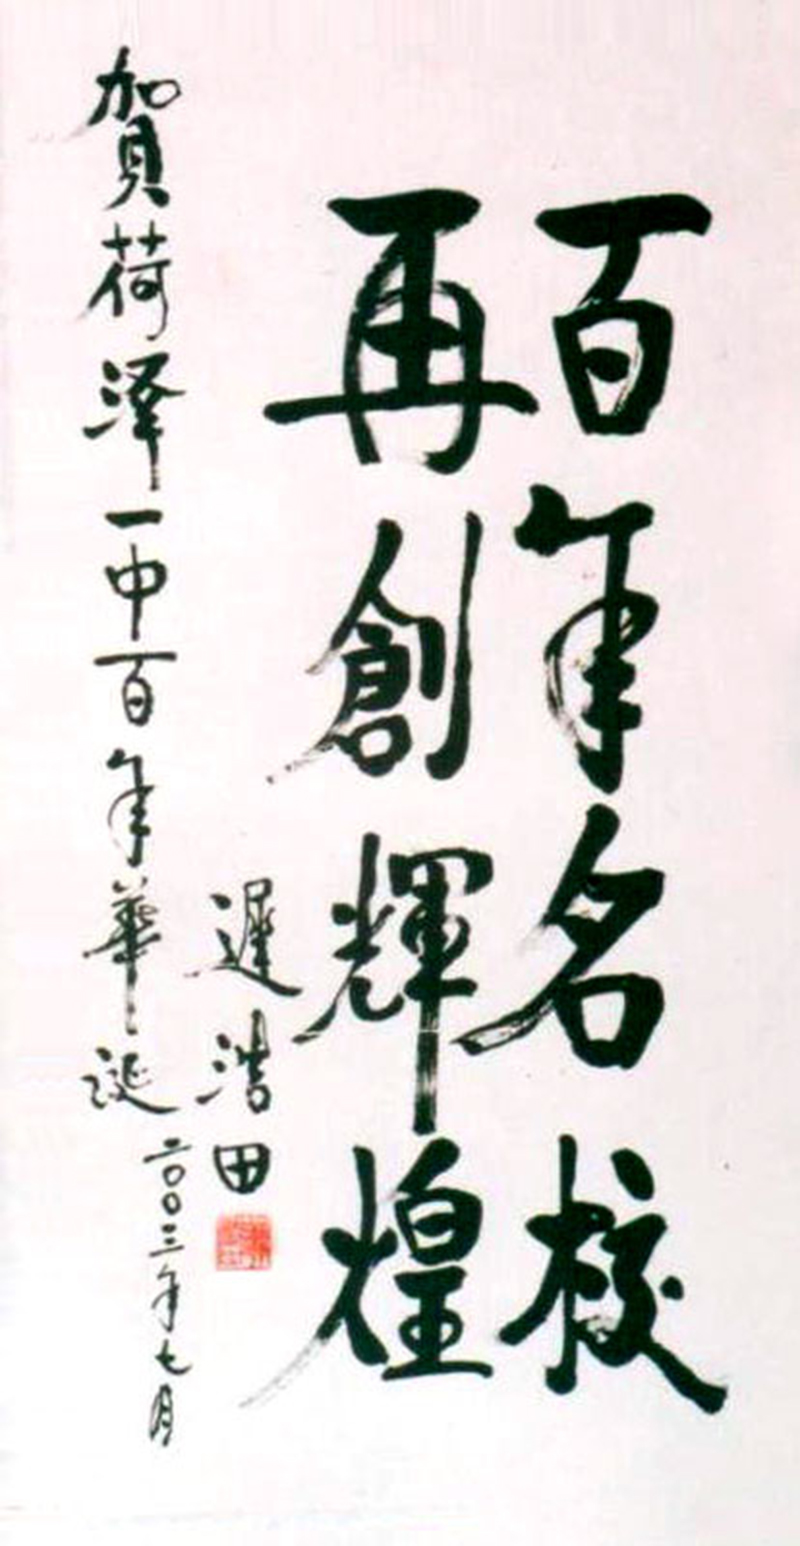 百年名校
再創輝煌
遲浩田
賀荷澤一中百年華誕
二〇〇三年七月